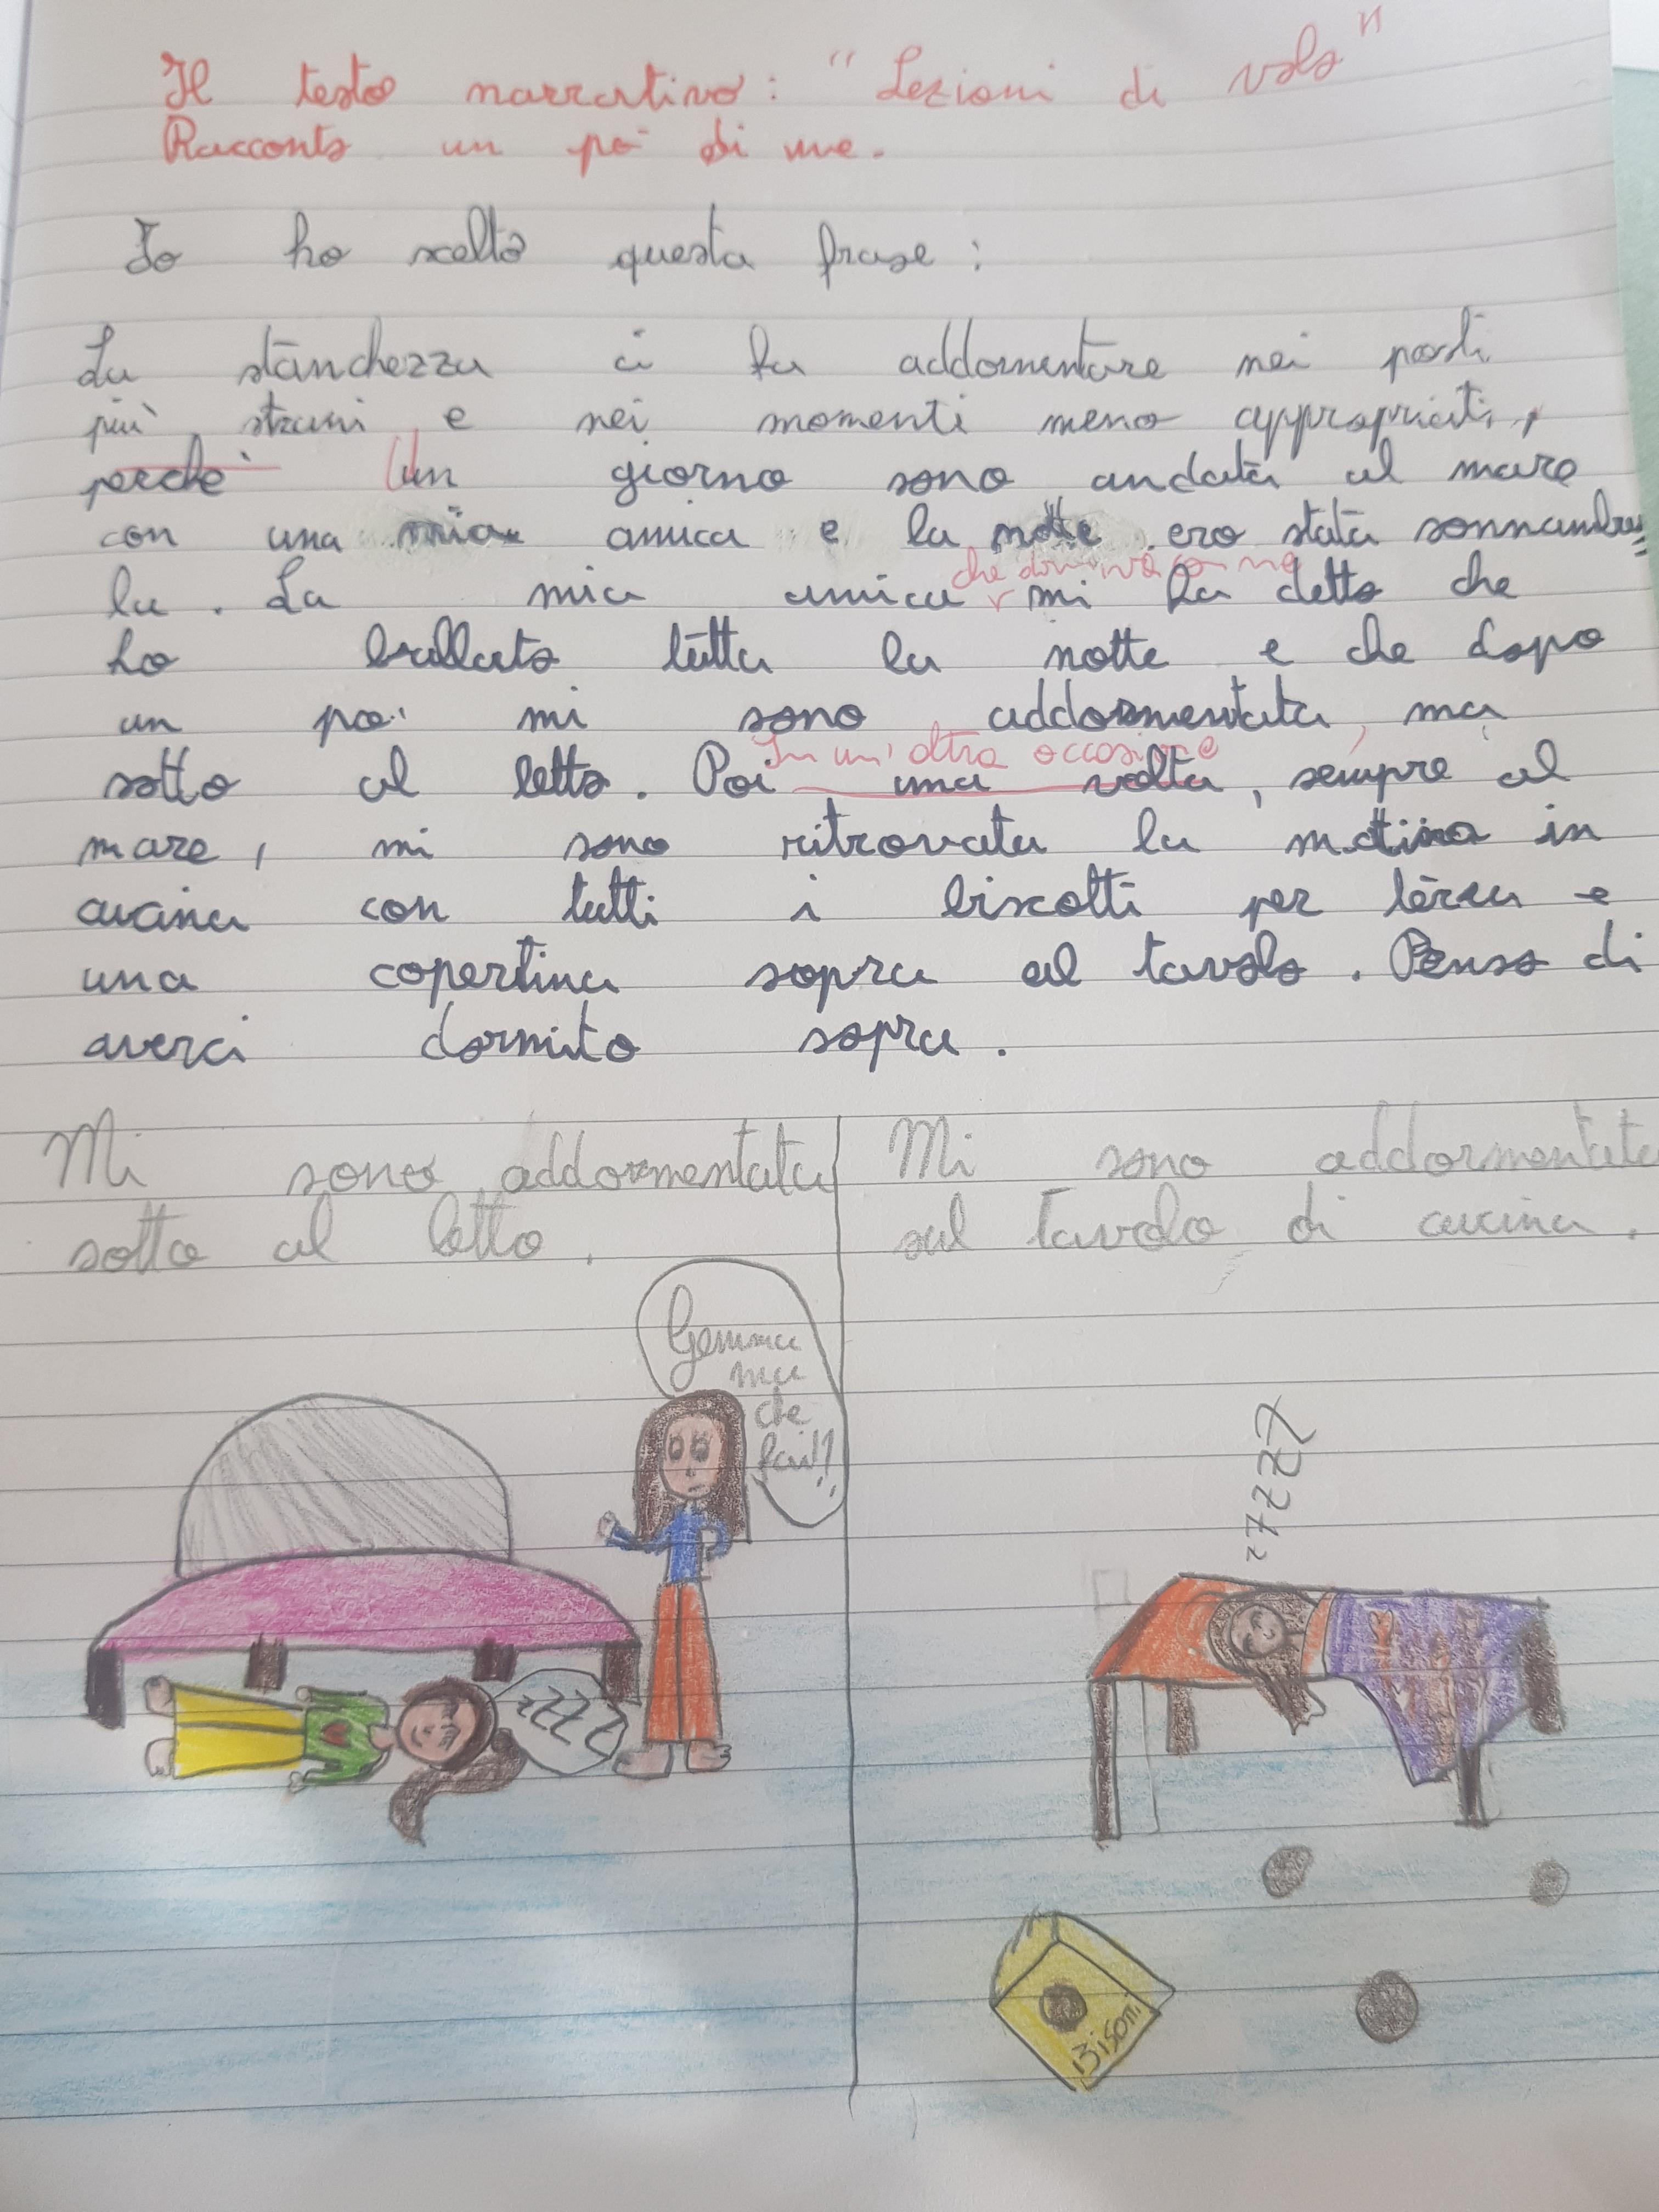 Il testo narrativo: "Lezioni di volo"
Racconto un po' di me.
Io ho scelto questa frase:
La stanchezza ci fa addormentare nei posti
più strani e nei momenti meno appropriati,
perchè Un giorno sono andata al mare
con una mia amica e la notte ero stata sonnambu=
la. La mia amica che dormiva con me mi ha detto che
ho ballato tutta la notte e che dopo
un po' mi sono addormentata, ma
sotto al letto. Poi una volta, sempre al
In un'altra occasione
mare, mi sono ritrovata la mattina in
cucina con tutti i biscotti per terra e
una copertina sopra al tavolo. Penso di
averci dormito sopra.
Mi sono addormentata
sotto al letto.
Gemma
ma
che
fai!?
ZZZZ
Mi sono addormentata
sul tavolo di cucina.
ZZZZz